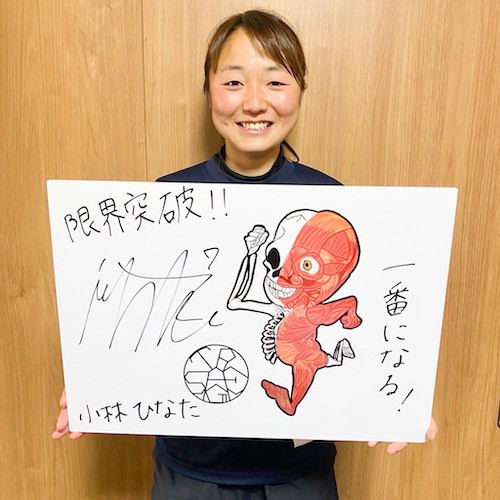 限界突破!!
一番になる!
小林ひなた